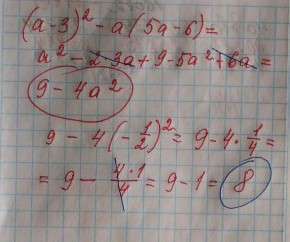 (a-3)² - a(5a-6)=
a² - 2·3a + 9 - 5a² + 6a =
9 - 4a²
9 - 4(-1/2)² = 9 - 4·1/4 =
= 9 - 4·1/4 = 9 - 1 = 8